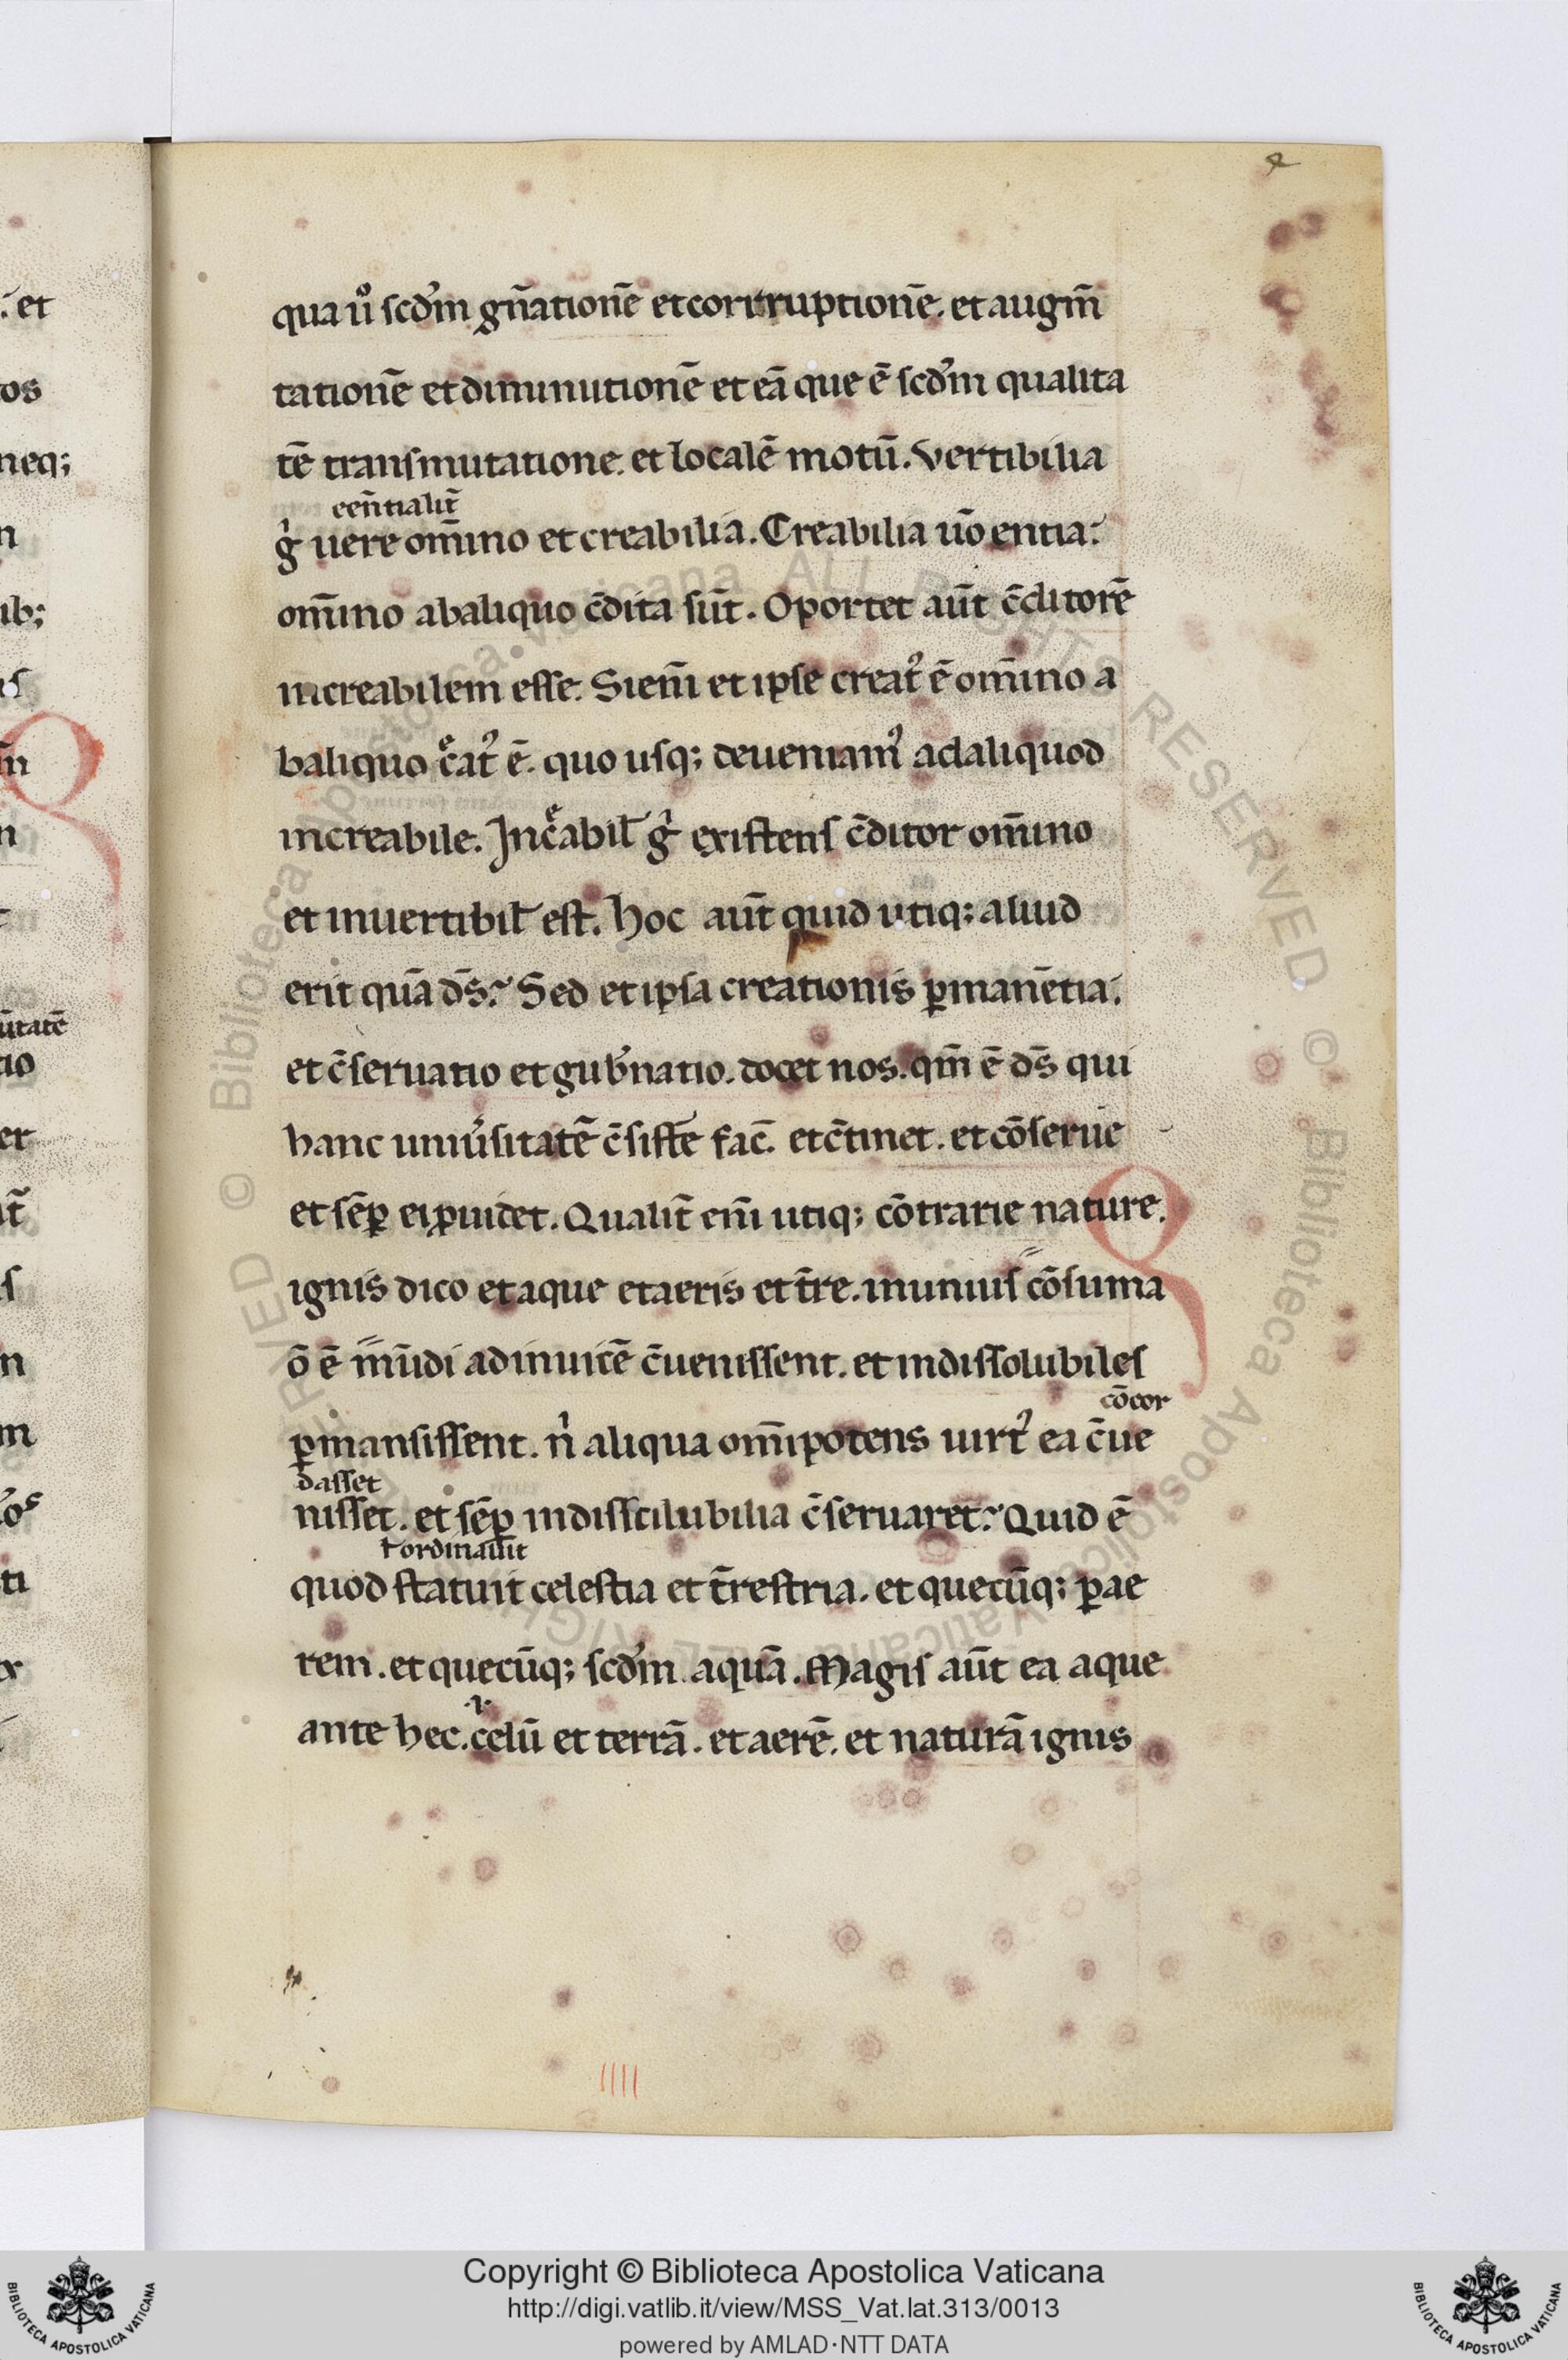 qua ũo scd'm gñationẽ et corrruptionẽ. et augm̃
tationẽ et diminutionẽ et eã que ẽ scd'm qualita
tẽ transmutatione. et localẽ motũ. Vertibilia
eeñtialit̃
g̊ uere om̃ino et creabilia. Creabilia ũo entia:
om̃ino abaliquo c̃dita sũt. Oportet aũt c̃ditorẽ
increabilem esse. Si em̃ et ipse creat᾽ ẽ om̃ino a
baliquo c̃at᾽ ẽ. quo usq; deueniam᾽ ad aliquod
increabile. Inc̃abil̃ g̊ existens c̃ditor om̃ino
et inuertibil̃ est. hoc aũt quid utiq; aliud
erit quã d̃s? Sed et ipsa creationis ꝑmanẽtia.
et c̃seruatio et gub'natio. docet nos. qm̃ ẽ d̃s qui
hanc uniu'sitatẽ c̃siste fac̃. et c̃tinet. et cõserue
et sẽꝑ ei ꝓuidet. Qualit̃ em̃ utiq; cõtrarie nature.
ignis dico et aque et aeris et t̃re. in unius cõsuma
õ ẽ mũdi adinuicẽ c̃uenissent. et indissolubiles
cõcor
ꝑmansissent. n̊ aliqua om̃ipotens uirt᾽ ea c̃ue
dasset
nisset. et sẽꝑ indissolubilia c̃seruaret? Quid ẽ
ł ordinauit
quod statuit celestia et t̃restria. et quecũq; ꝑ ae
rem. et quecũq; scd'm aquã. Magis aũt ea aque
.i.
ante hec. celũ et terrã. et aerẽ. et naturã ignis
IIII
. et
os
neq;
n
ib;
is
m̃
n
ũtatẽ
tio
er
s
n
m
ti
Copyright © Biblioteca Apostolica Vaticana
http://digi.vatlib.it/view/MSS_Vat.lat.313/0013
powered by AMLAD·NTT DATA
BIBLIOTECA APOSTOLICA VATICANA
BIBLIOTECA APOSTOLICA VATICANA